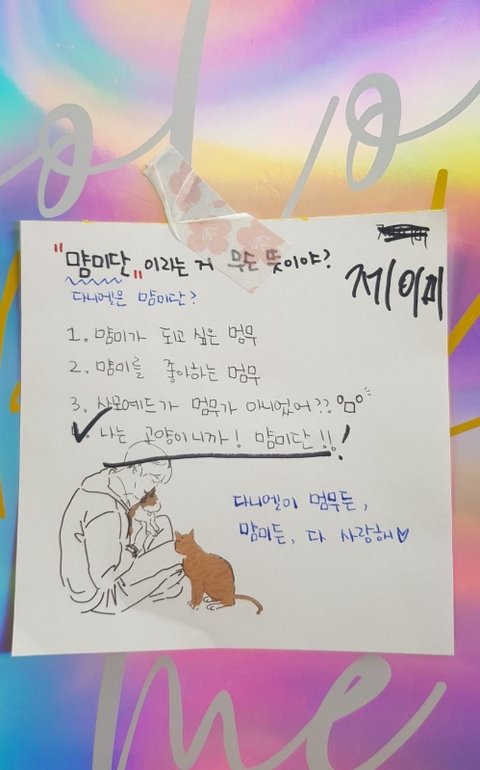 "먐미단"이라는 거 무슨 뜻이야?
제이미
다니엘은 먐미단?
1. 먐미가 되고 싶은 멈무
2. 먐미를 좋아하는 멈무
3. 사모예드가 멈무가 아니었어??
나는 고양이니까! 먐미단!!!
다니엘이 멈무든,
먐미든, 다 사랑해♡
me